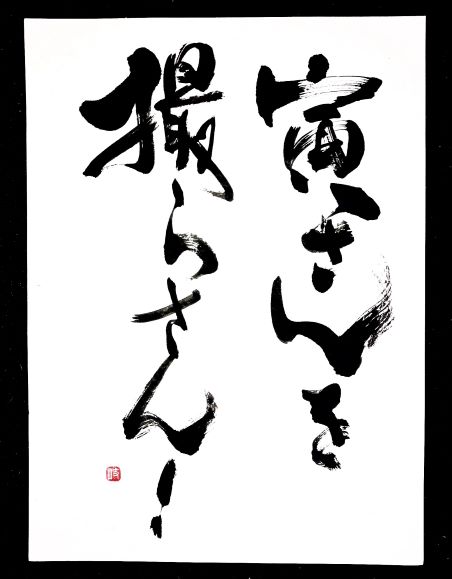 寅さんを
撮らさん!